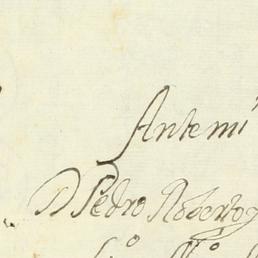 Antemi
D Pedro Roberto